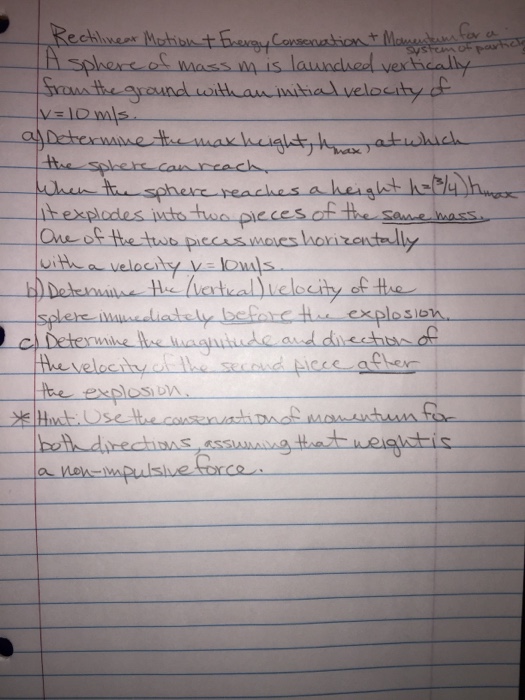 Rectilinear Motion + Energy Conservation + Momentum for a
system of particles
A sphere of mass m is launched vertically
from the ground with an initial velocity of
v=10m/s.
a) Determine the max height, hmax, at which
the sphere can reach.
When the sphere reaches a height h=(3/4)hmax
it explodes into two pieces of the same mass.
One of the two pieces moves horizontally
with a velocity v=10m/s.
b) Determine the (vertical) velocity of the
sphere immediately before the explosion.
c) Determine the magnitude and direction of
the velocity of the second piece after
the explosion.
* Hint: Use the conservation of momentum for
both directions, assuming that weight is
a non-impulsive force.